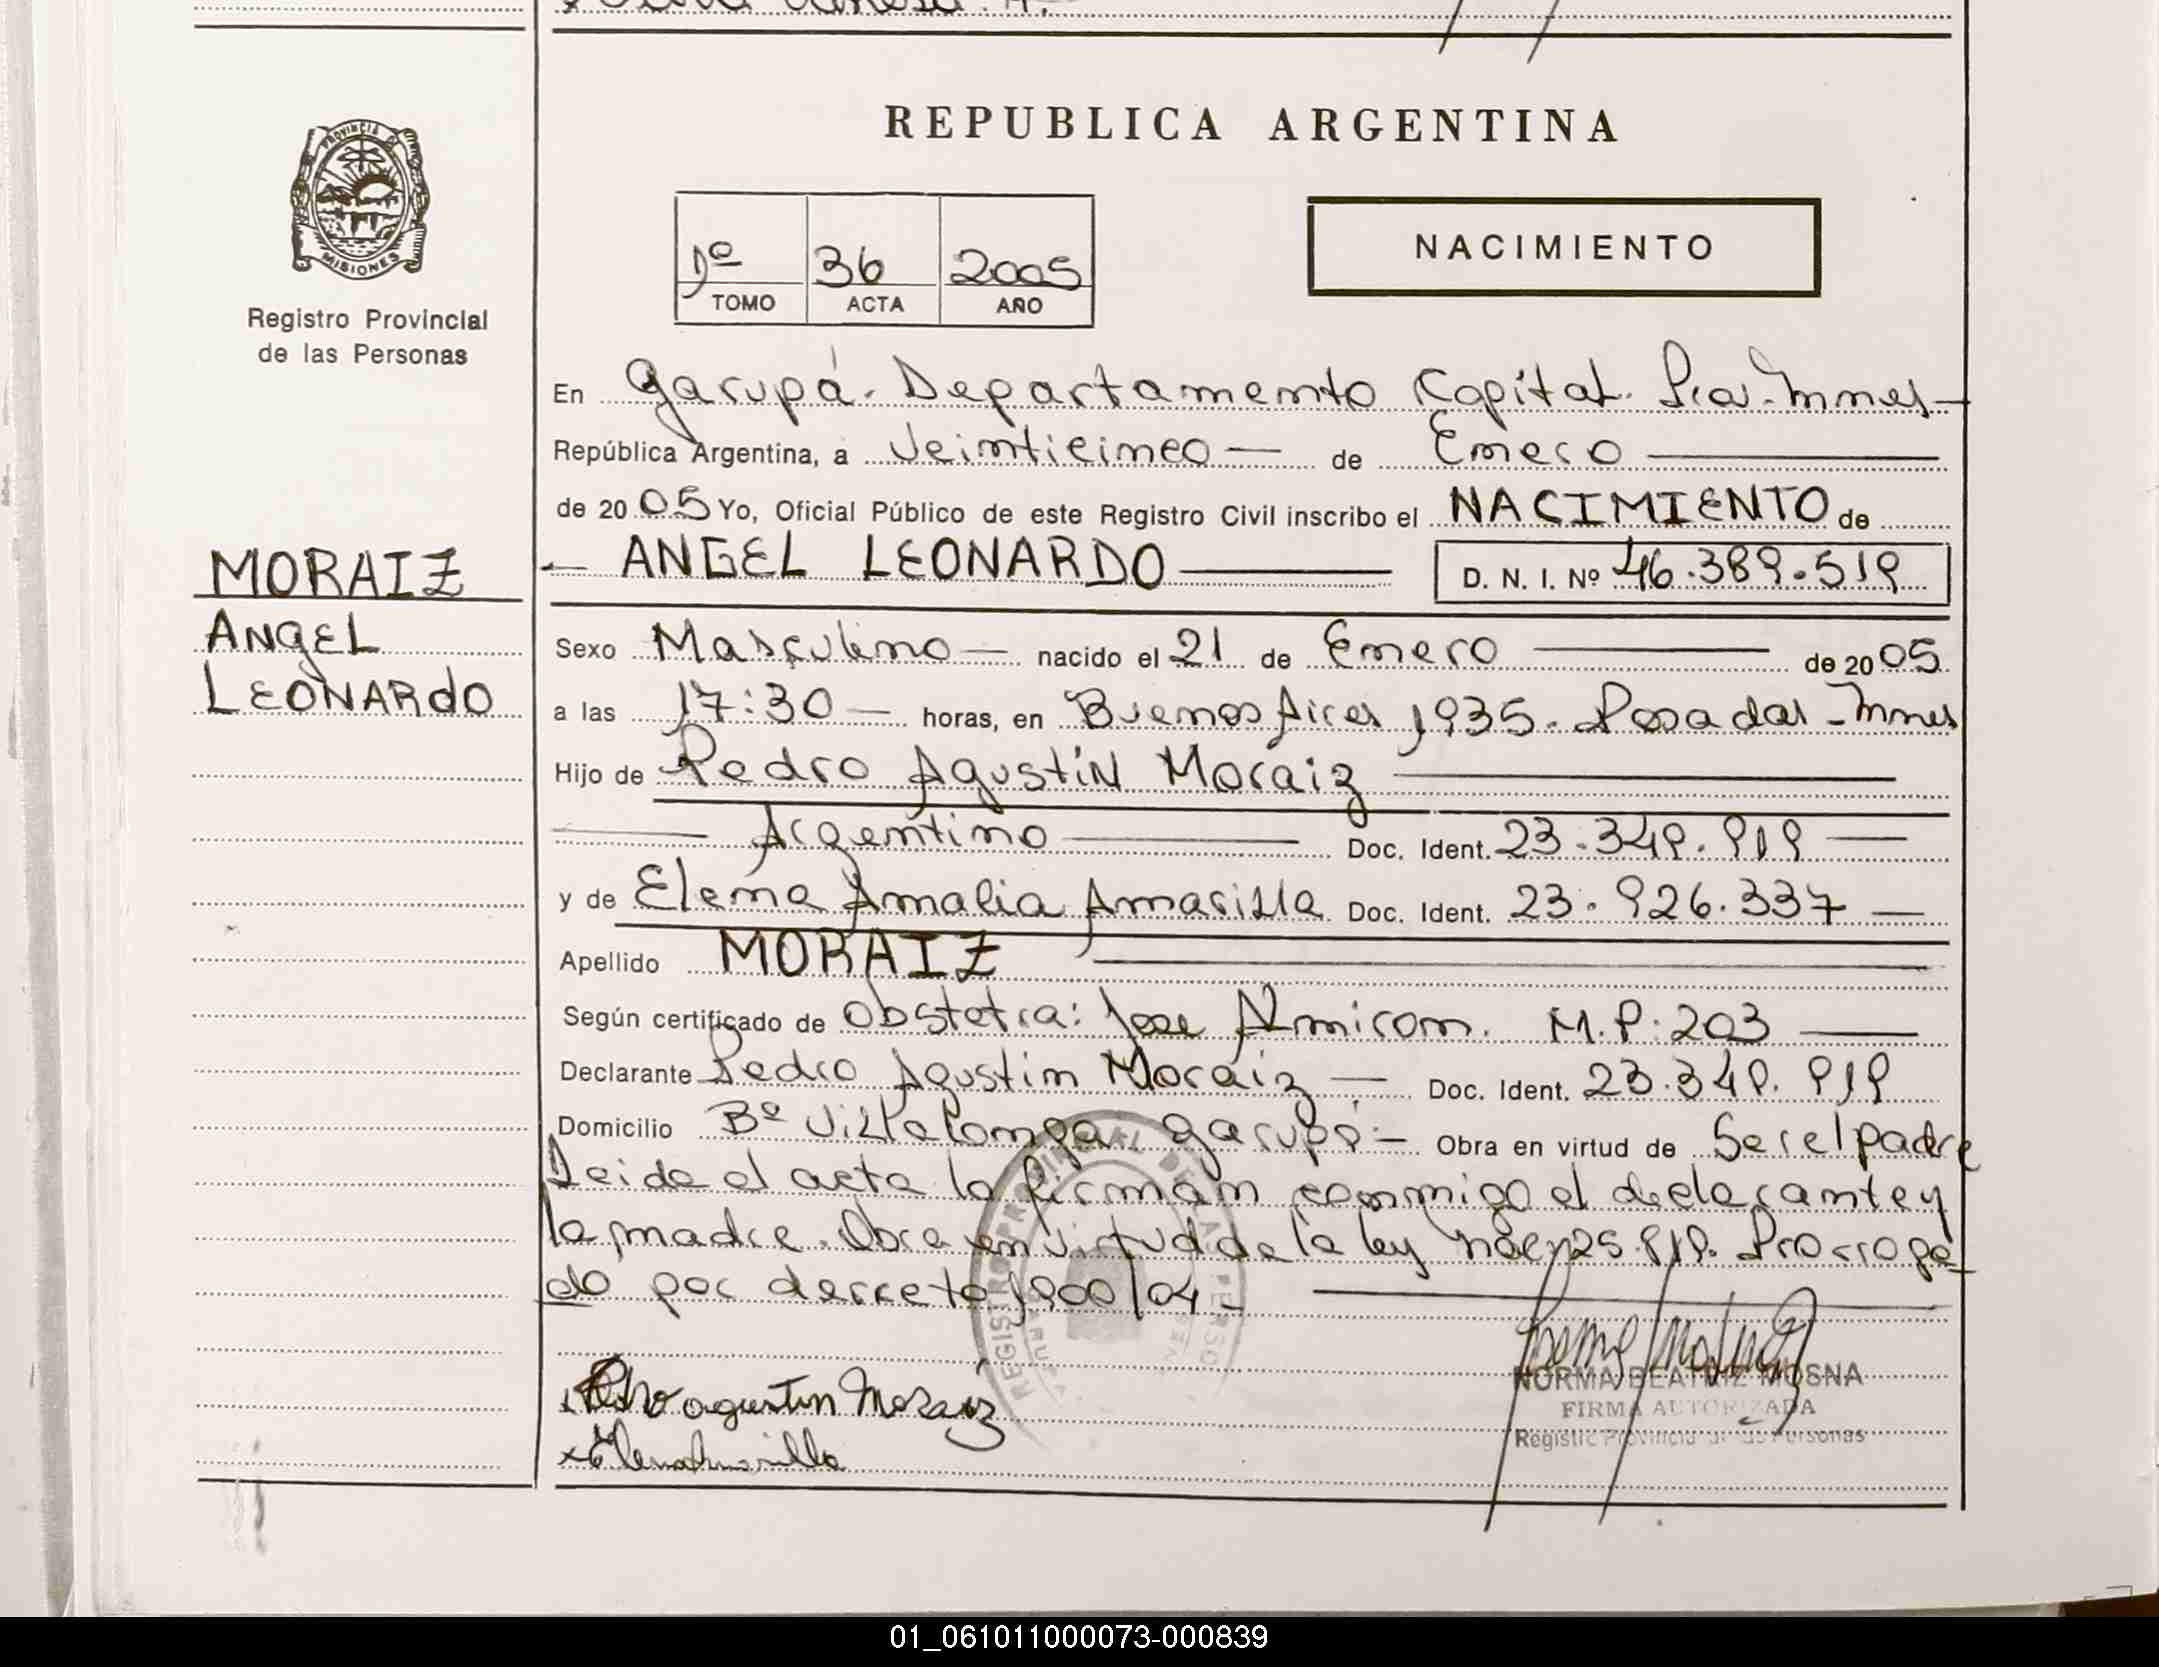 REPUBLICA ARGENTINA
PROVINCIA DE
MISIONES
Registro Provincial
de las Personas
1º 36 2005
TOMO ACTA AÑO
NACIMIENTO
En Garupá. Departamento Capital. Pcia. Mnes
República Argentina, a Veinticinco de Enero
de 2005 Yo, Oficial Público de este Registro Civil inscribo el NACIMIENTO de
MORAIZ
ANGEL LEONARDO D. N. I. Nº 46.389.519
ANGEL
LEONARDO
Sexo Masculino nacido el 21 de Enero de 2005
a las 17:30 horas, en Buenos Aires 1935. Posadas - Mnes
Hijo de Pedro Agustín Moraiz
Argentino Doc. Ident. 23.349.919
y de Elena Amalia Amarilla Doc. Ident. 23.926.337
Apellido MORAIZ
Según certificado de Obstetra: Jose Almiron. M.P: 203
Declarante Pedro Agustin Moraiz Doc. Ident. 23.349.919
Domicilio Bº Villalonga Garupá Obra en virtud de Ser el padre
Leida el acta la firman conmigo el declarante y
la madre. Obra en virtud de la ley 25.819. Prorroga
do por decreto 1900/04
agustin Moraiz
x Elena Amarilla
NORMA BEATRIZ MOSNA
FIRMA AUTORIZADA
Registro Provincial de las Personas
01_061011000073-000839